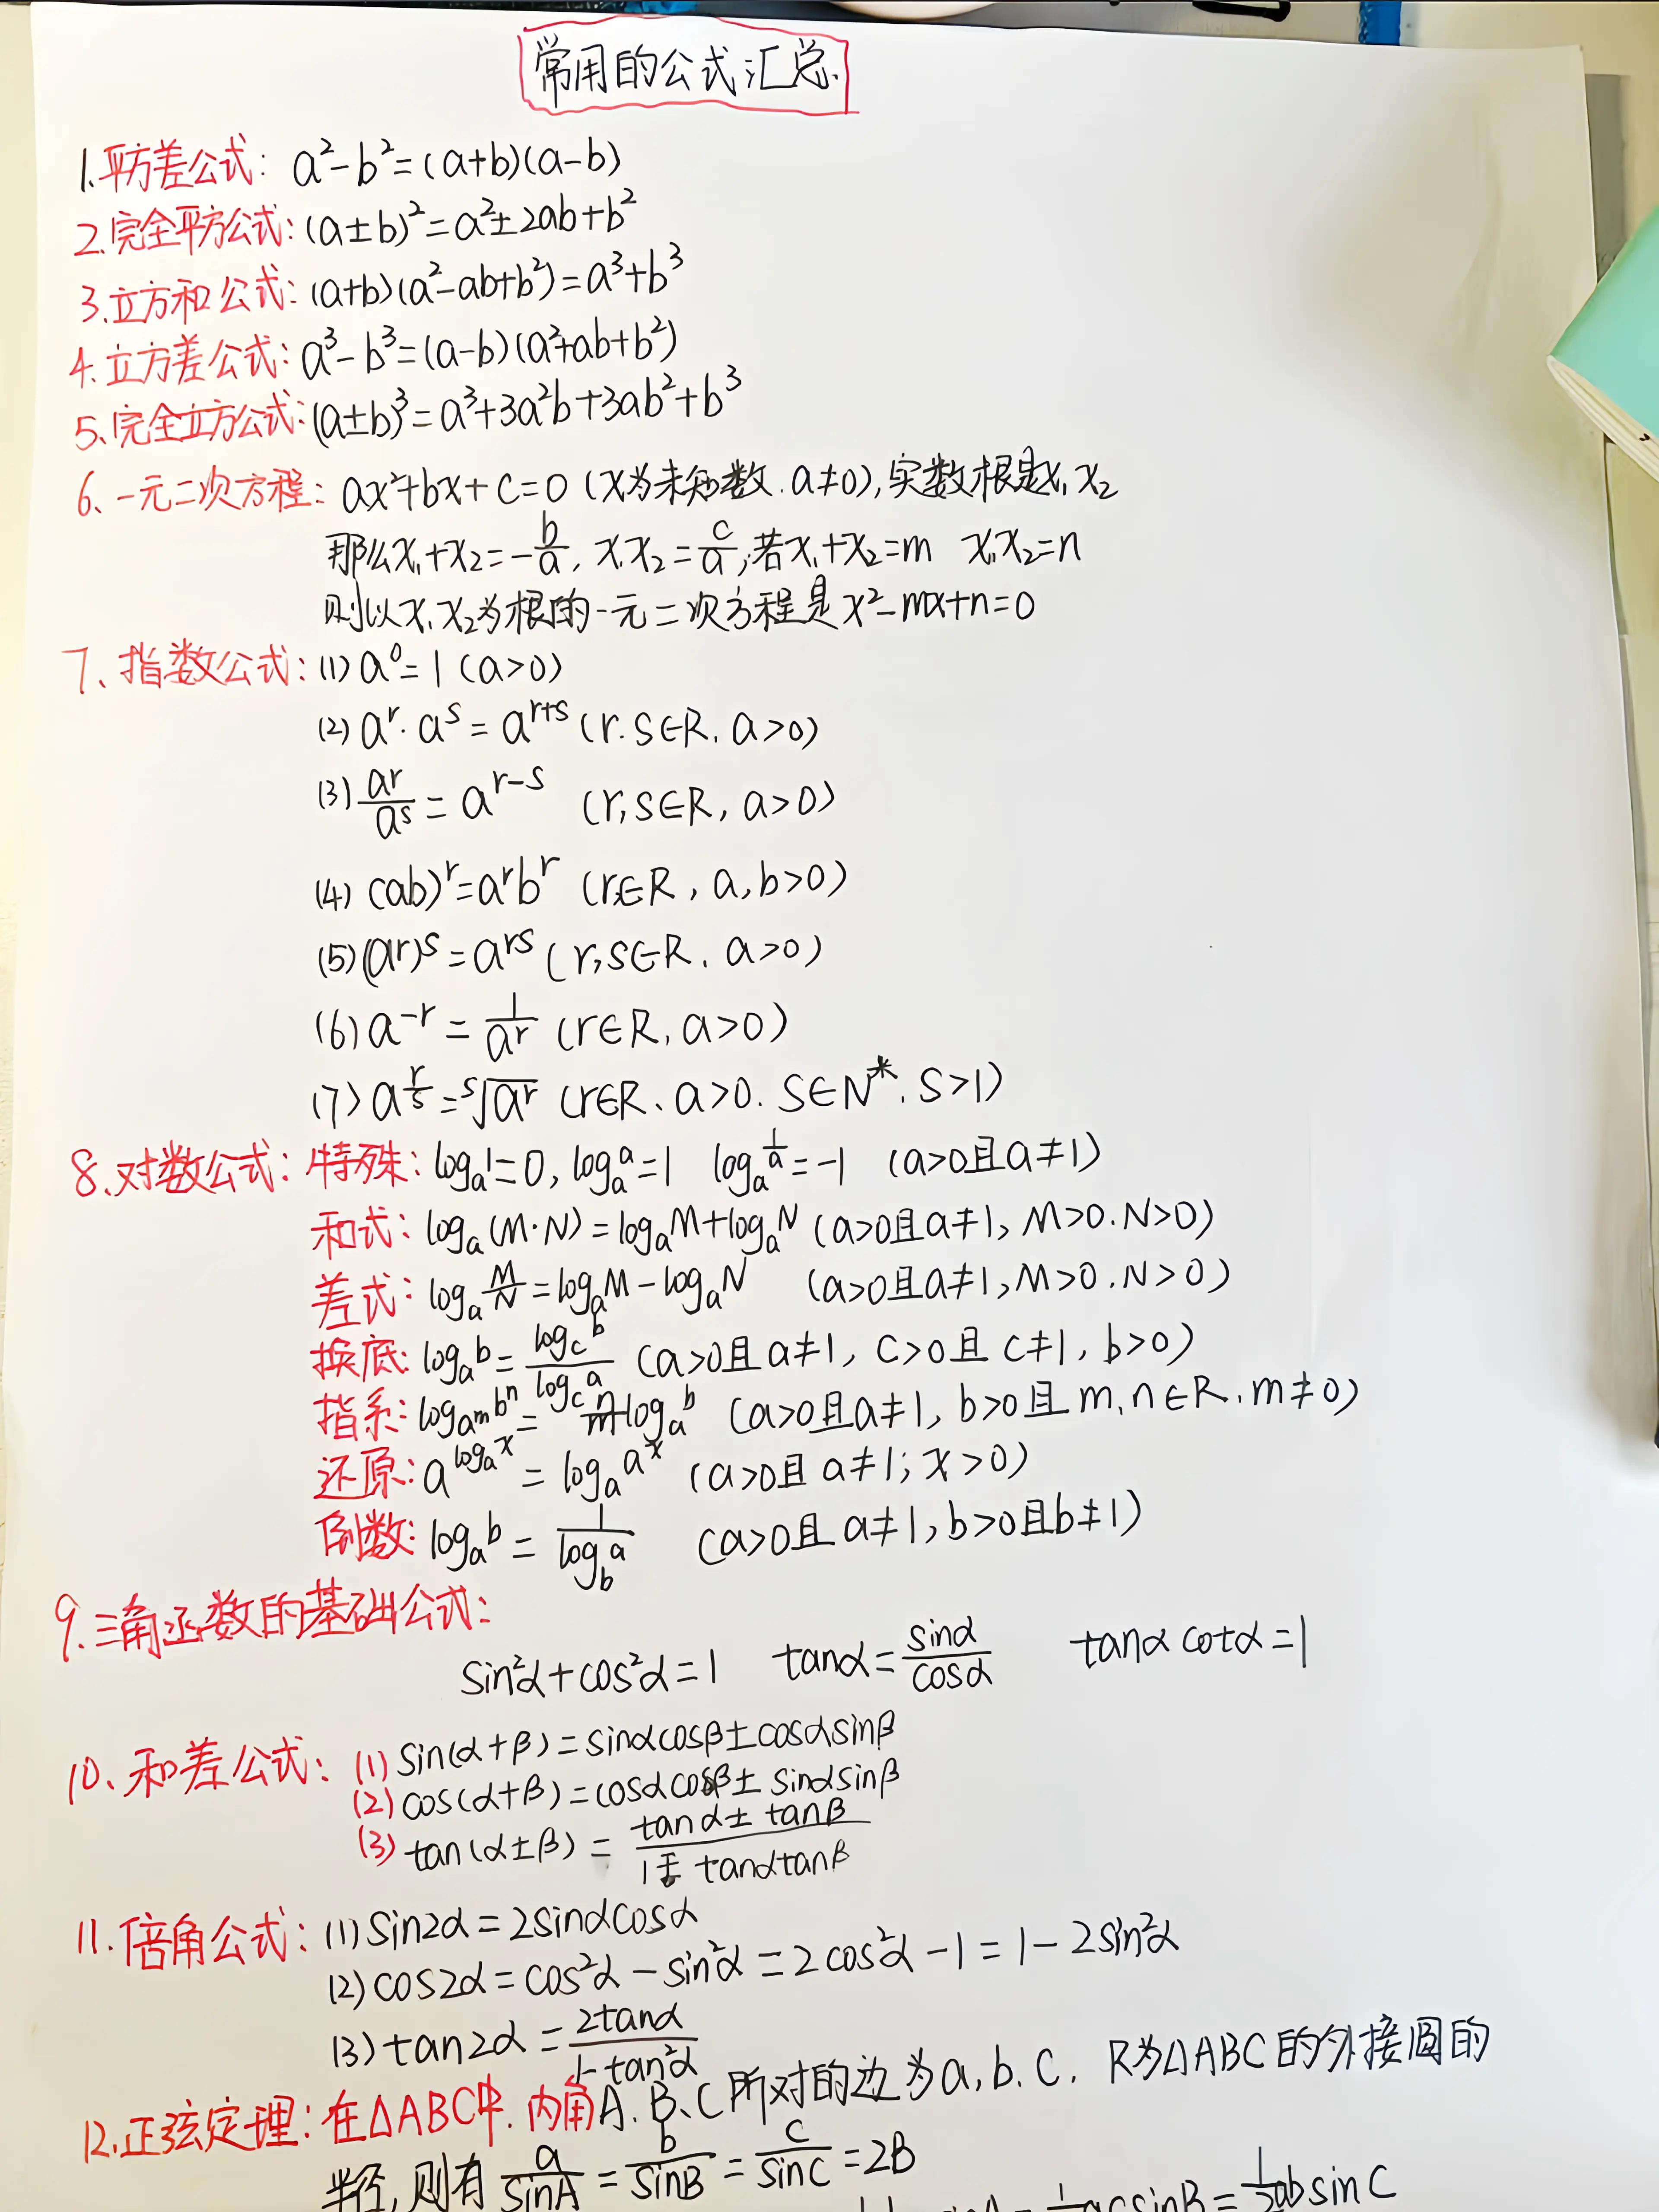 常用的公式汇总.
1.平方差公式: a²-b²=(a+b)(a-b)
2.完全平方公式: (a±b)²=a²±2ab+b²
3.立方和公式: (a+b)(a²-ab+b²)=a³+b³
4.立方差公式: a³-b³=(a-b)(a²+ab+b²)
5.完全立方公式: (a±b)³=a³+3a²b+3ab²+b³
6、一元二次方程: ax²+bx+c=0 (x为未知数.a≠0),实数根是x₁x₂
那么x₁+x₂=-b/a, x₁x₂=c/a,若x₁+x₂=m x₁x₂=n
则以x₁x₂为根的一元二次方程是x²-mx+n=0
7、指数公式: (1) a⁰=1 (a>0)
(2) aʳ·aˢ=aʳ⁺ˢ (r.s∈R.a>0)
(3) aʳ/aˢ=aʳ⁻ˢ (r,s∈R,a>0)
(4) (ab)ʳ=aʳbʳ (r∈R,a,b>0)
(5) (aʳ)ˢ=aʳˢ (r,s∈R.a>0)
(6) a⁻ʳ=1/aʳ (r∈R,a>0)
(7) a^(r/s)=ˢ√aʳ (r∈R、a>0.s∈N*.s>1)
8.对数公式: 特殊: logₐ1=0, logₐa=1 logₐ(1/a)=-1 (a>0且a≠1)
和式: logₐ(M·N)=logₐM+logₐN (a>0且a≠1,M>0.N>0)
差式: logₐ(M/N)=logₐM-logₐN (a>0且a≠1,M>0.N>0)
换底: logₐb=log_c b/log_c a (a>0且a≠1,c>0且c≠1,b>0)
指系: log_(aᵐ) bⁿ=n/m logₐb (a>0且a≠1,b>0且m,n∈R.m≠0)
还原: a^(logₐx)=logₐaˣ (a>0且a≠1;x>0)
倒数: logₐb=1/log_b a (a>0且a≠1,b>0且b≠1)
9.三角函数的基础公式:
sin²α+cos²α=1 tanα=sinα/cosα tanαcotα=1
10、和差公式: (1) sin(α+β)=sinαcosβ±cosαsinβ
(2) cos(α+β)=cosαcosβ±sinαsinβ
(3) tan(α±β)=(tanα±tanβ)/(1∓tanαtanβ)
11.倍角公式: (1) sin2α=2sinαcosα
(2) cos2α=cos²α-sin²α=2cos²α-1=1-2sin²α
(3) tan2α=2tanα/(1-tan²α)
12.正弦定理: 在△ABC中.内角A.B、C所对的边为a,b.c. R为△ABC的外接圆的
半径,则有 a/sinA=b/sinB=c/sinC=2B
acsinB=1/2absinC